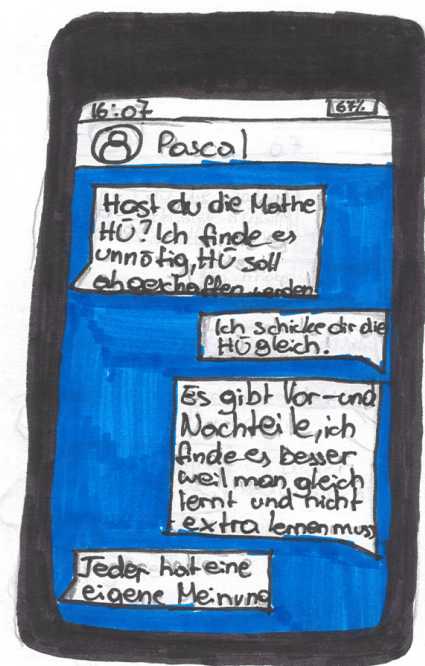 16:07 67%
Pascal
Hast du die Mathe
HÜ? Ich finde es
unnötig, HÜ soll
abgeschaffen werden
Ich schicke dir die
HÜ gleich.
Es gibt Vor-und
Nachteile, ich
finde es besser
weil man gleich
lernt und nicht
extra lernen muss
Jeder hat eine
eigene Meinung